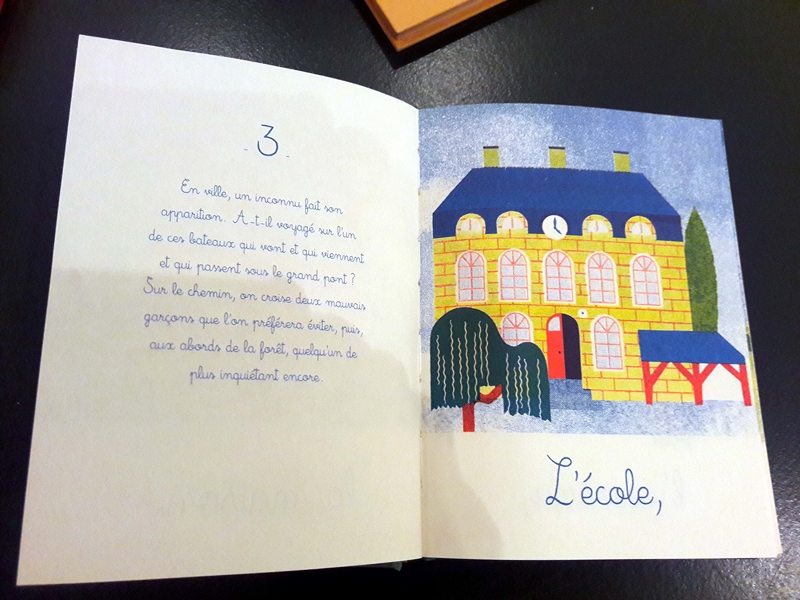 - 3 -
En ville, un inconnu fait son
apparition. A-t-il voyagé sur l'un
de ces bateaux qui vont et qui viennent
et qui passent sous le grand pont ?
Sur le chemin, on croise deux mauvais
garçons que l'on préférera éviter, puis,
aux abords de la forêt, quelqu'un de
plus inquiétant encore.
L'école,